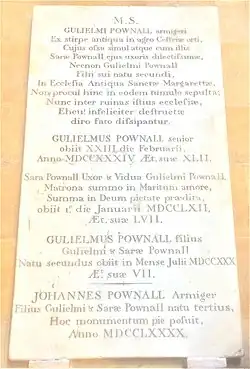 M.S.
GULIELMI POWNALL armigeri
Ex stirpe antiqua in agro Cestriæ orti,
Cujus ossa simul atque cum illis
Saræ Pownall ejus uxoris dilectissimæ,
Necnon Gulielmi Pownall
Filii sui natu secundi,
In Ecclesia Antiqua Sanctæ Margarettæ,
Non procul hinc in eodem tumulo sepulta;
Nunc inter ruinas istius ecclesiæ,
Eheu! infeliciter destructæ
diro fato dissipantur.
GULIELMUS POWNALL senior
obiit XXIII die Februarii,
Anno MDCCXXXIV Æt. suæ XLIII.
Sara Pownall Uxor & Vidua Gulielmi Pownall,
Matrona summo in Maritum amore,
Summa in Deum pietate prædita,
obiit 1º die Januarii MDCCLXII,
Æt. suæ LVII.
GULIELMUS POWNALL filius
Gulielmi & Saræ Pownall
Natu secundus obiit in Mense Julii MDCCXXX
Æt. suæ VII.
JOHANNES POWNALL Armiger
Filius Gulielmi & Saræ Pownall natu tertius,
Hoc monumentum pie posuit,
Anno MDCCLXXXX.